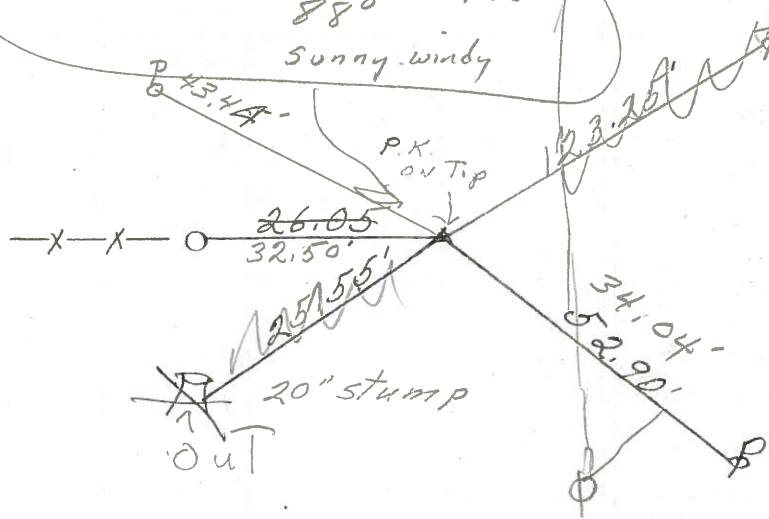 88°
sunny windy
P
43.44-
P.K.
ON Tip
123.25'
—x—x—
26.05
32.50'
25.55'
34.04-
52.90'
20" stump
OUT
P